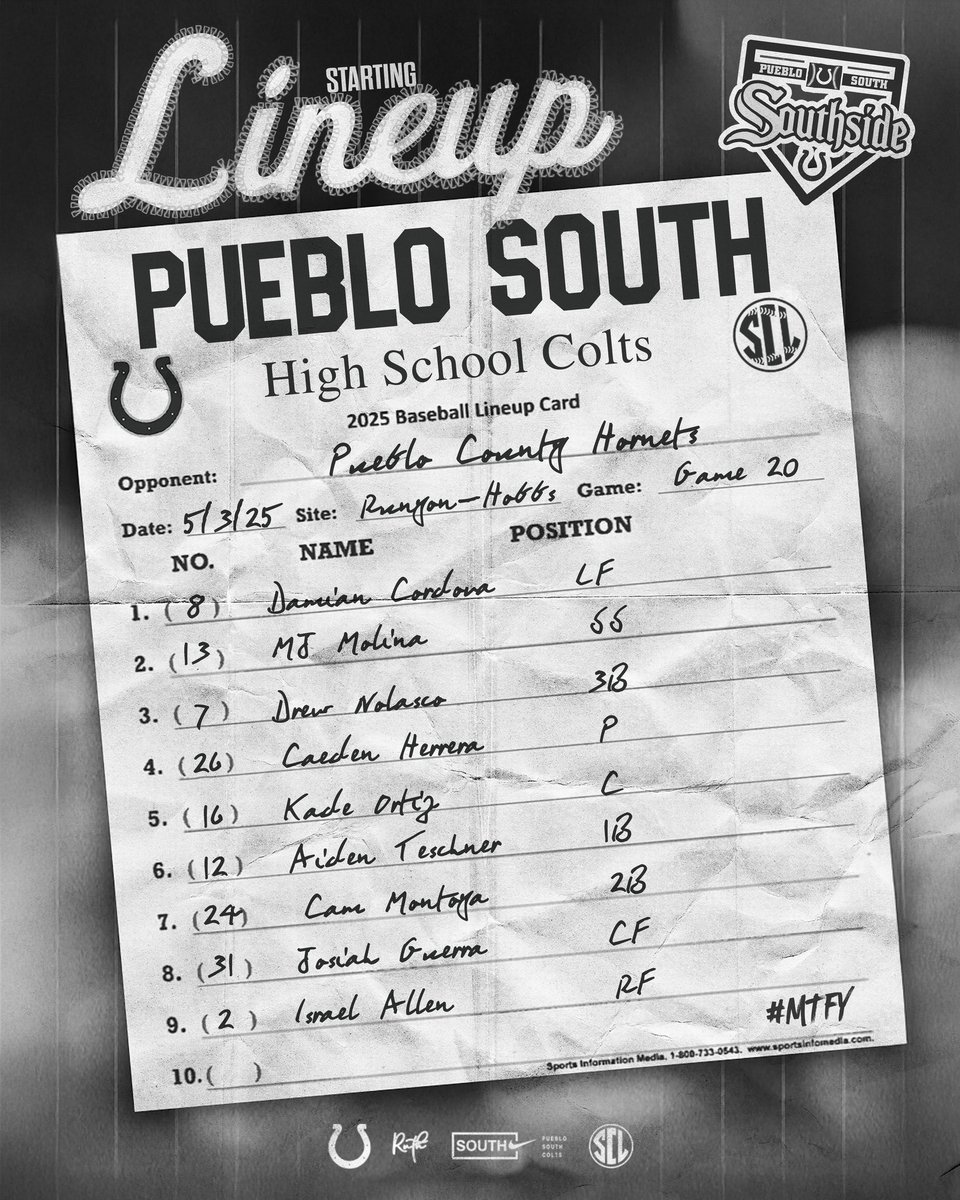 STARTING
Lineup
PUEBLO SOUTH
Southside
PUEBLO SOUTH
High School Colts
SCL
2025 Baseball Lineup Card
Opponent: Pueblo County Hornets
Date: 5/3/25 Site: Runyon-Hobbs Game: Game 20
NO. NAME POSITION
1. (8) Damian Cordova LF
2. (13) MJ Molina SS
3. (7) Drew Nolasco 3B
4. (26) Caeden Herrera P
5. (16) Kade Ortiz C
6. (12) Aiden Teschner 1B
7. (24) Cam Montoya 2B
8. (31) Josiah Guerra CF
9. (2) Israel Allen RF
#MTFY
10. ( )
Sports Information Media. 1-800-733-0543. www.sportsinfomedia.com.
SOUTH
PUEBLO
SOUTH
COLTS
SCL